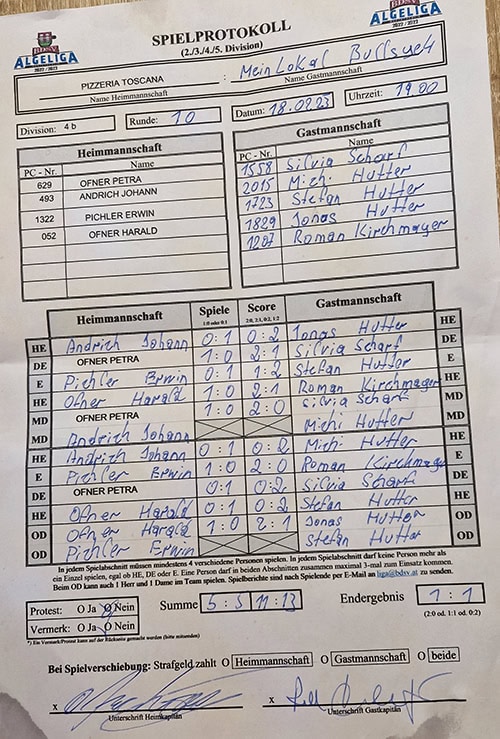 BDSV
ALGELIGA
2022 / 2023
SPIELPROTOKOLL
(2./3./4./5. Division)
BDSV
ALGELIGA
2022 / 2023
PIZZERIA TOSCANA : Mein Lokal Bullseye
Name Heimmannschaft Name Gastmannschaft
Division: 4 b Runde: 10 Datum: 18.02.23 Uhrzeit: 19 00
Heimmannschaft
PC - Nr. Name
629 OFNER PETRA
493 ANDRICH JOHANN
1322 PICHLER ERWIN
052 OFNER HARALD
Gastmannschaft
PC - Nr. Name
1558 Silvia Scharf
2015 Michi Hutter
1723 Stefan Hutter
1829 Jonas Hutter
1207 Roman Kirchmayer
Heimmannschaft Spiele Score Gastmannschaft
1:0 oder 0:1 2:0, 2:1, 0:2, 1:2
HE Andrich Johann 0:1 0:2 Jonas Hutter HE
DE OFNER PETRA 1:0 2:1 Silvia Scharf DE
E Pichler Erwin 0:1 1:2 Stefan Hutter E
HE Ofner Harald 1:0 2:1 Roman Kirchmayer HE
MD OFNER PETRA 1:0 2:0 Silvia Scharf MD
MD Andrich Johann Michi Hutter MD
HE Andrich Johann 0:1 0:2 Michi Hutter HE
E Pichler Erwin 1:0 2:0 Roman Kirchmayer E
DE OFNER PETRA 0:1 0:2 Silvia Scharf DE
HE Ofner Harald 0:1 0:2 Stefan Hutter HE
OD Ofner Harald 1:0 2:1 Jonas Hutter OD
OD Pichler Erwin Stefan Hutter OD
In jedem Spielabschnitt müssen mindestens 4 verschiedene Personen spielen. In jedem Spielabschnitt darf keine Person mehr als
ein Einzel spielen, egal ob HE, DE oder E. Eine Person darf in beiden Abschnitten zusammen maximal 3-mal zum Einsatz kommen.
Beim OD kann auch 1 Herr und 1 Dame im Team spielen. Spielberichte sind nach Spielende per E-Mail an liga@bdsv.at zu senden.
Protest: O Ja O Nein Summe 5:5 11:13 Endergebnis 1:1
Vermerk: O Ja O Nein (2:0 od. 1:1 od. 0:2)
*) Ein Vermerk/Protest kann auf der Rückseite gemacht werden (bitte mitsenden)
Bei Spielverschiebung: Strafgeld zahlt O Heimmannschaft O Gastmannschaft O beide
x x
Unterschrift Heimkapitän Unterschrift Gastkapitän